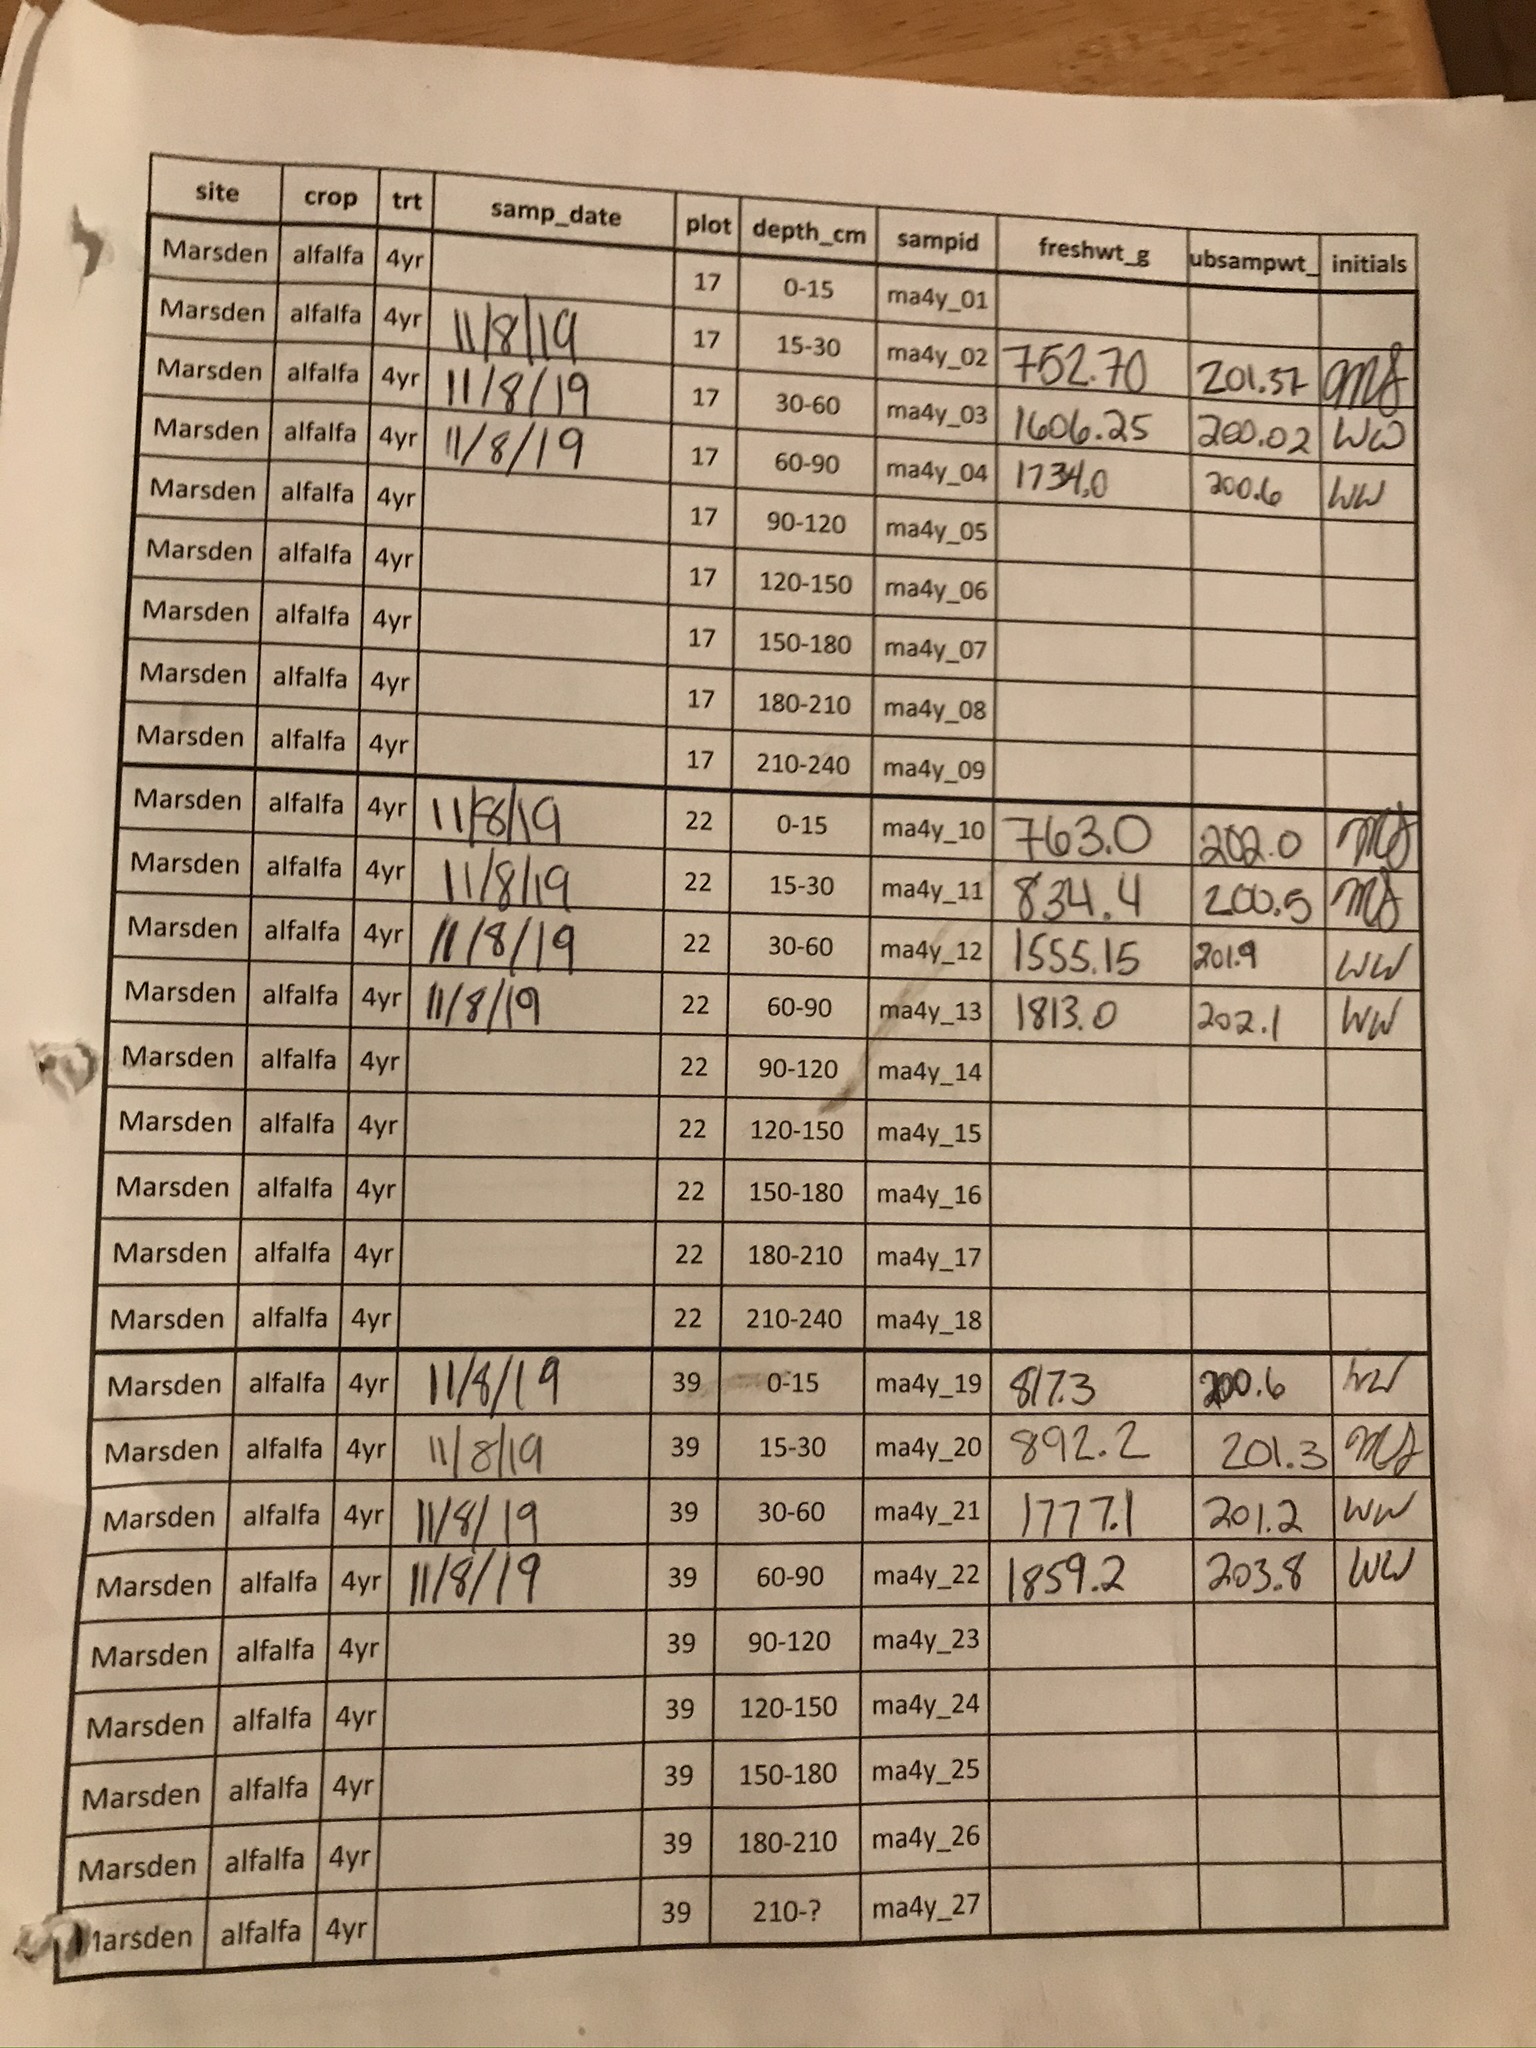 site crop trt samp_date plot depth_cm sampid freshwt_g ubsampwt_ initials
Marsden alfalfa 4yr 17 0-15 ma4y_01
Marsden alfalfa 4yr 11/8/19 17 15-30 ma4y_02 752.70 201.57 MS
Marsden alfalfa 4yr 11/8/19 17 30-60 ma4y_03 1606.25 200.02 WW
Marsden alfalfa 4yr 11/8/19 17 60-90 ma4y_04 1734.0 200.6 WW
Marsden alfalfa 4yr 17 90-120 ma4y_05
Marsden alfalfa 4yr 17 120-150 ma4y_06
Marsden alfalfa 4yr 17 150-180 ma4y_07
Marsden alfalfa 4yr 17 180-210 ma4y_08
Marsden alfalfa 4yr 17 210-240 ma4y_09
Marsden alfalfa 4yr 11/8/19 22 0-15 ma4y_10 763.0 202.0 MS
Marsden alfalfa 4yr 11/8/19 22 15-30 ma4y_11 834.4 200.5 MS
Marsden alfalfa 4yr 11/8/19 22 30-60 ma4y_12 1555.15 201.9 WW
Marsden alfalfa 4yr 11/8/19 22 60-90 ma4y_13 1813.0 202.1 WW
Marsden alfalfa 4yr 22 90-120 ma4y_14
Marsden alfalfa 4yr 22 120-150 ma4y_15
Marsden alfalfa 4yr 22 150-180 ma4y_16
Marsden alfalfa 4yr 22 180-210 ma4y_17
Marsden alfalfa 4yr 22 210-240 ma4y_18
Marsden alfalfa 4yr 11/8/19 39 0-15 ma4y_19 817.3 200.6 WW
Marsden alfalfa 4yr 11/8/19 39 15-30 ma4y_20 892.2 201.3 MS
Marsden alfalfa 4yr 11/8/19 39 30-60 ma4y_21 1777.1 201.2 WW
Marsden alfalfa 4yr 11/8/19 39 60-90 ma4y_22 1859.2 203.8 WW
Marsden alfalfa 4yr 39 90-120 ma4y_23
Marsden alfalfa 4yr 39 120-150 ma4y_24
Marsden alfalfa 4yr 39 150-180 ma4y_25
Marsden alfalfa 4yr 39 180-210 ma4y_26
Marsden alfalfa 4yr 39 210-? ma4y_27